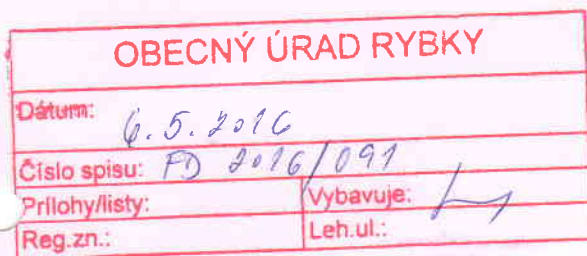 OBECNÝ ÚRAD RYBKY
Dátum: 6.5.2016
Číslo spisu: FD 2016/091
Prílohy/listy: Vybavuje:
Reg.zn.: Leh.ul.: